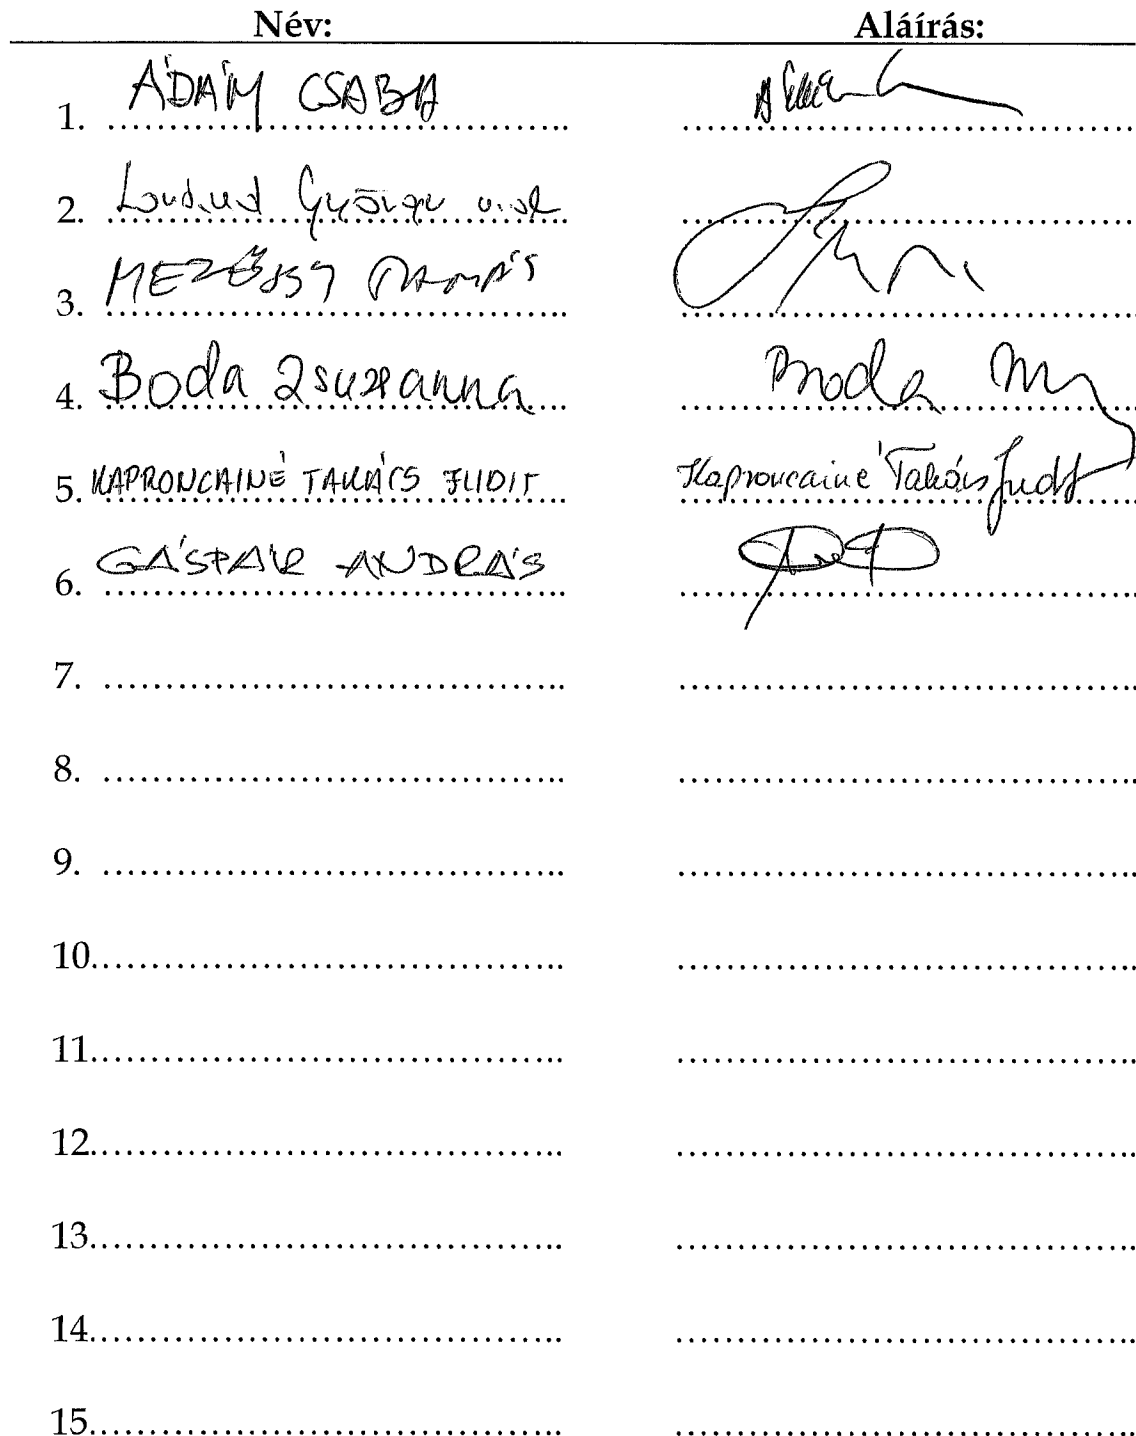 Név: Aláírás:
1. ÁDÁM CSABA
2. György
3. MEZŐSSY TAMÁS
4. Boda Zsuzsanna Boda
5. KAPRONCAINÉ TAKÁCS JUDIT Kaproncainé Takács Judit
6. GÁSPÁR ANDRÁS
7.
8.
9.
10.
11.
12.
13.
14.
15.